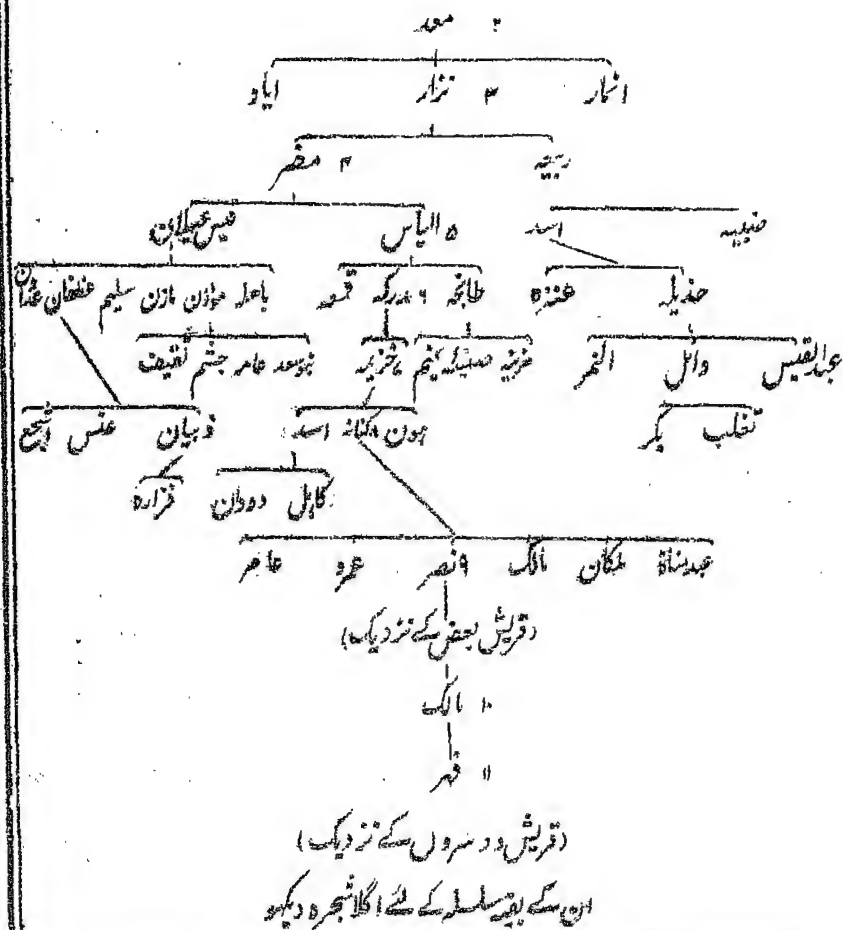 ۲ معد
انمار ۳ نزار ایاد
ربیعہ ۴ مضر
ضبیعہ اسد ۵ الیاس قیس عیلان
جدیلہ عنزہ طابخہ ۶ مدرکہ قمعہ باھلہ ھوازن مازن سلیم غطفان
عبدالقیس وائل النمر مزینہ تمیم ۷ خزیمہ بنوسعد عامر جشم ثقیف
تغلب بکر ہون ۸ کنانہ اسد ذبیان عبس اشجع
کاہل دودان فزارہ
عبدمناۃ ملکان مالک ۹ نصر عمرو عامر
(قریش بعض کے نزدیک)
۱۰ مالک
۱۱ فہر
(قریش دوسروں کے نزدیک)
ان کے بقیہ سلسلہ کے لئے اگلا شجرہ دیکھو